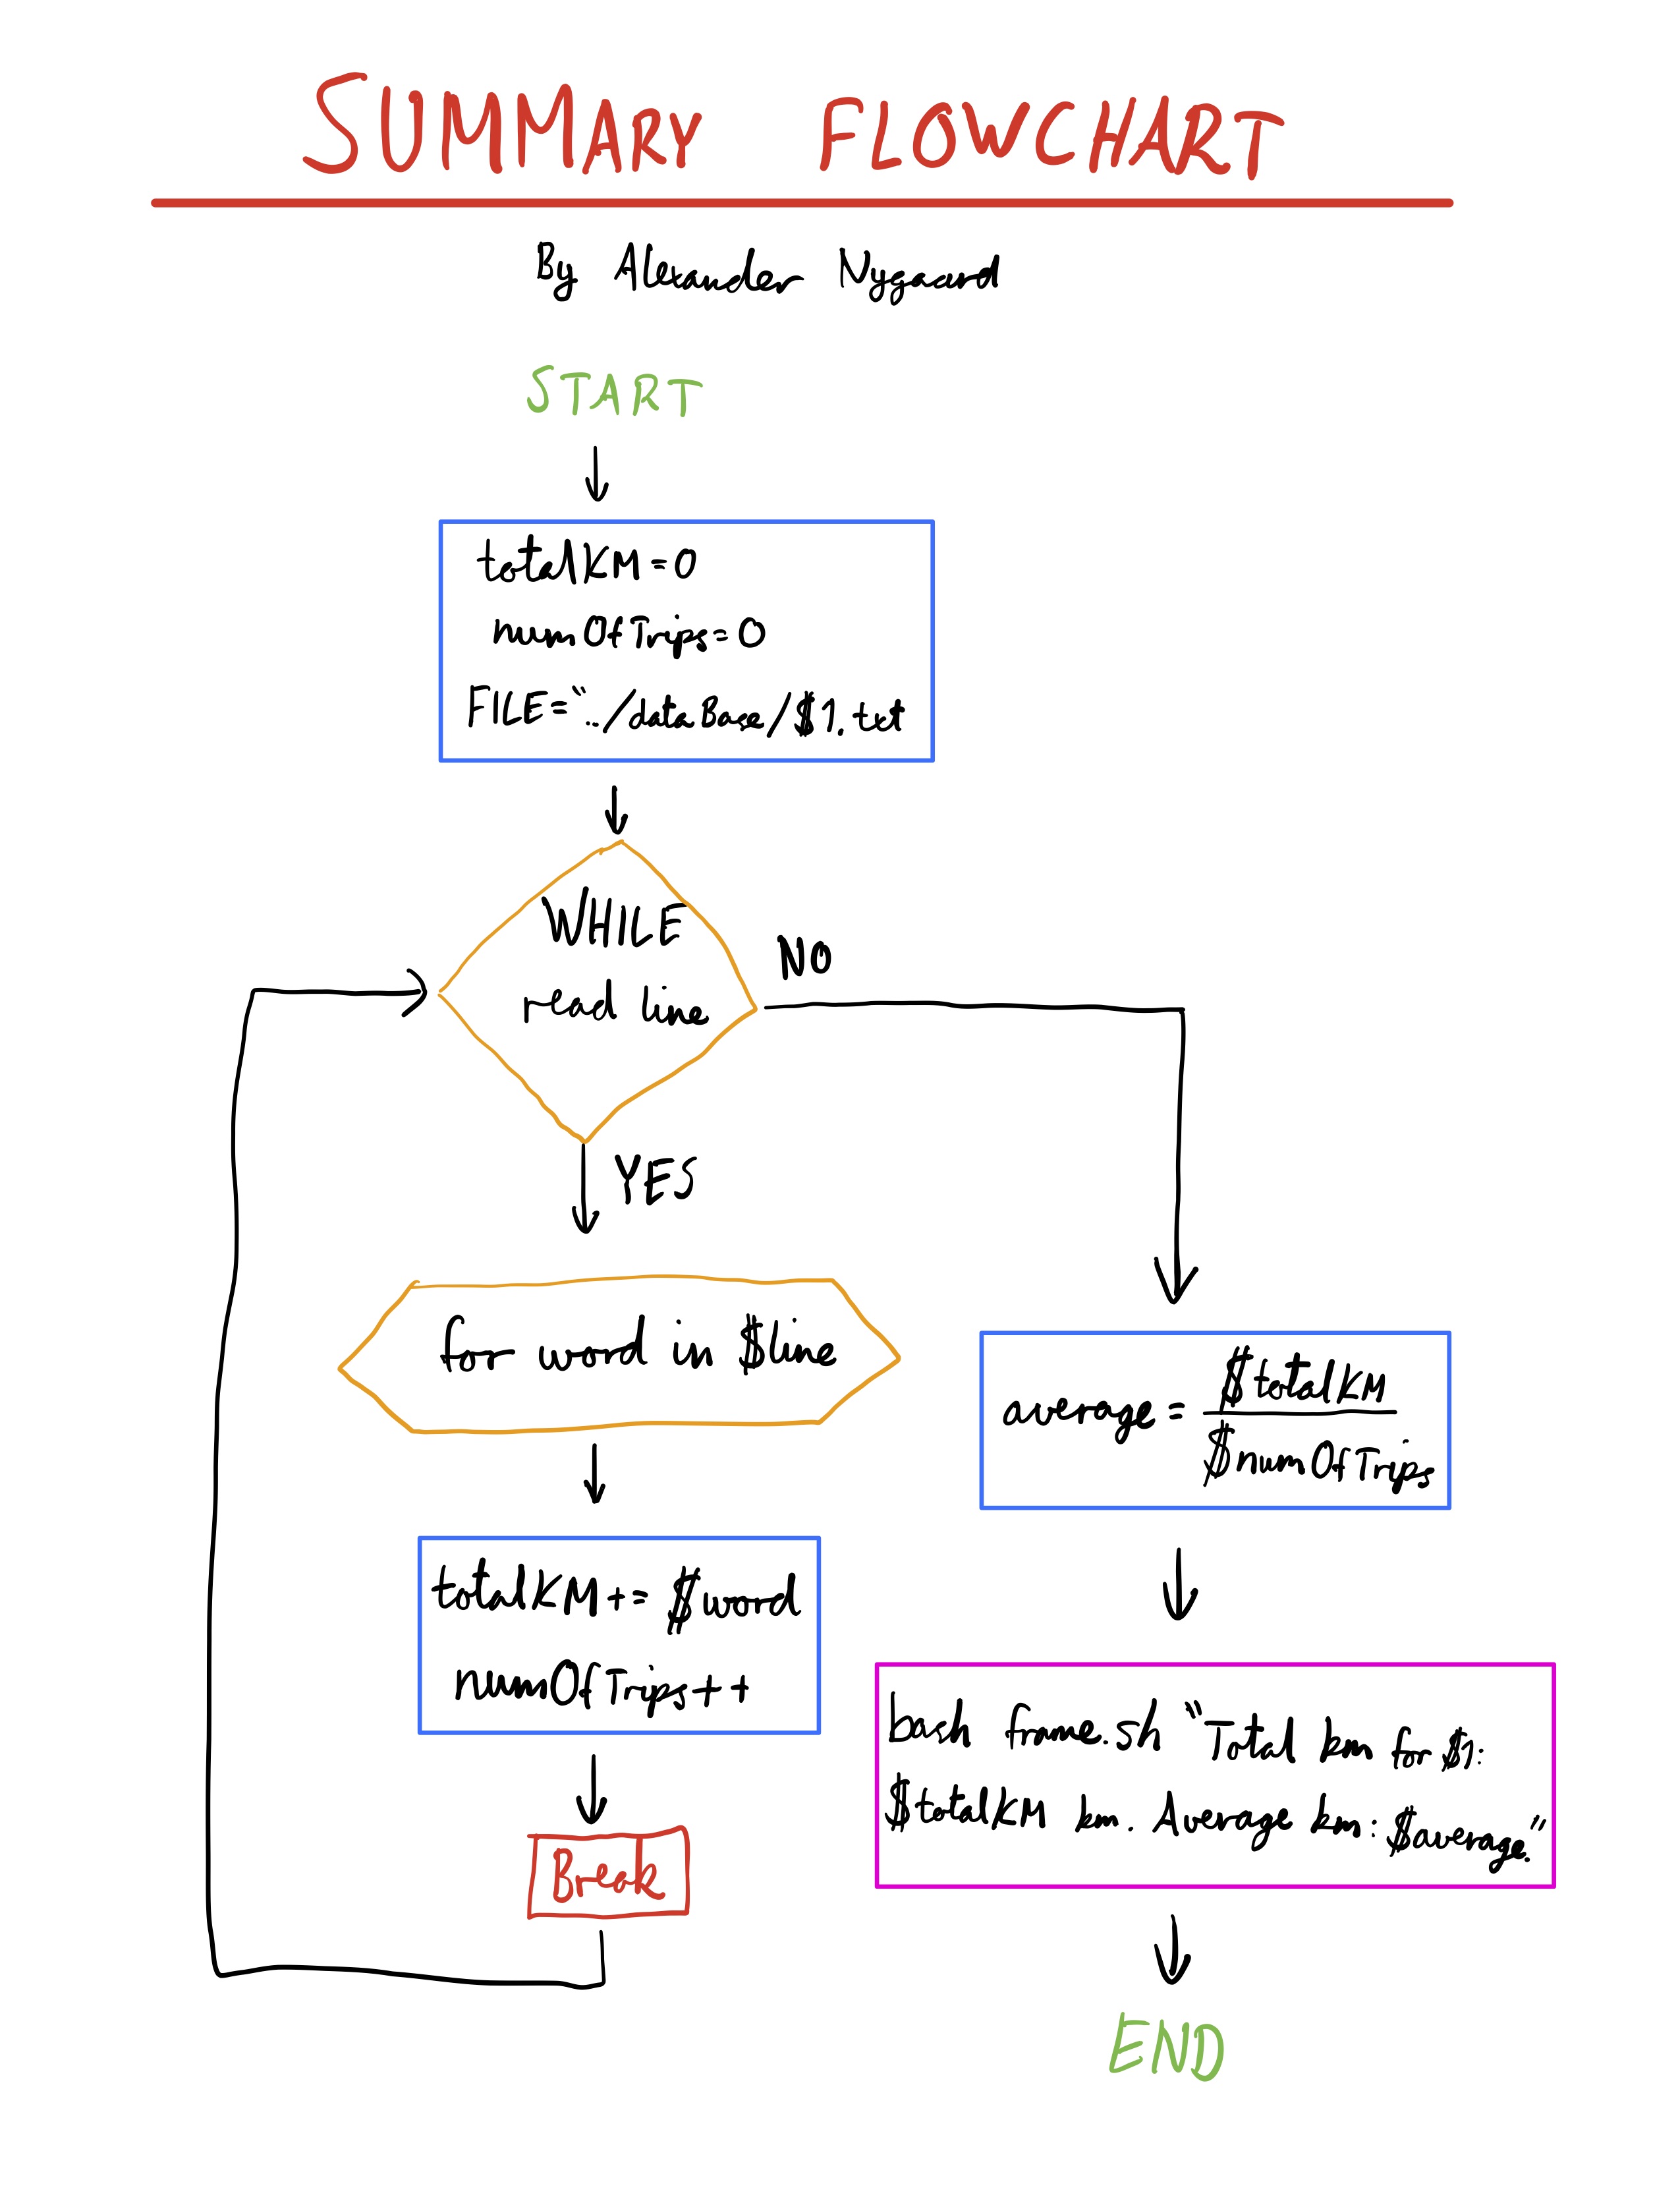 SUMMARY FLOWCHART
By Alexander Nygaard
START
totalKM=0
numOfTrips=0
FILE="../dataBase/$1.txt
WHILE
read line
NO
YES
for word in $line
totalKM+= $word
numOfTrips++
Break
average = $totalKM
$numOfTrips
bash frame.sh "Total km for $1:
$totalKM km. Average km: $average."
END